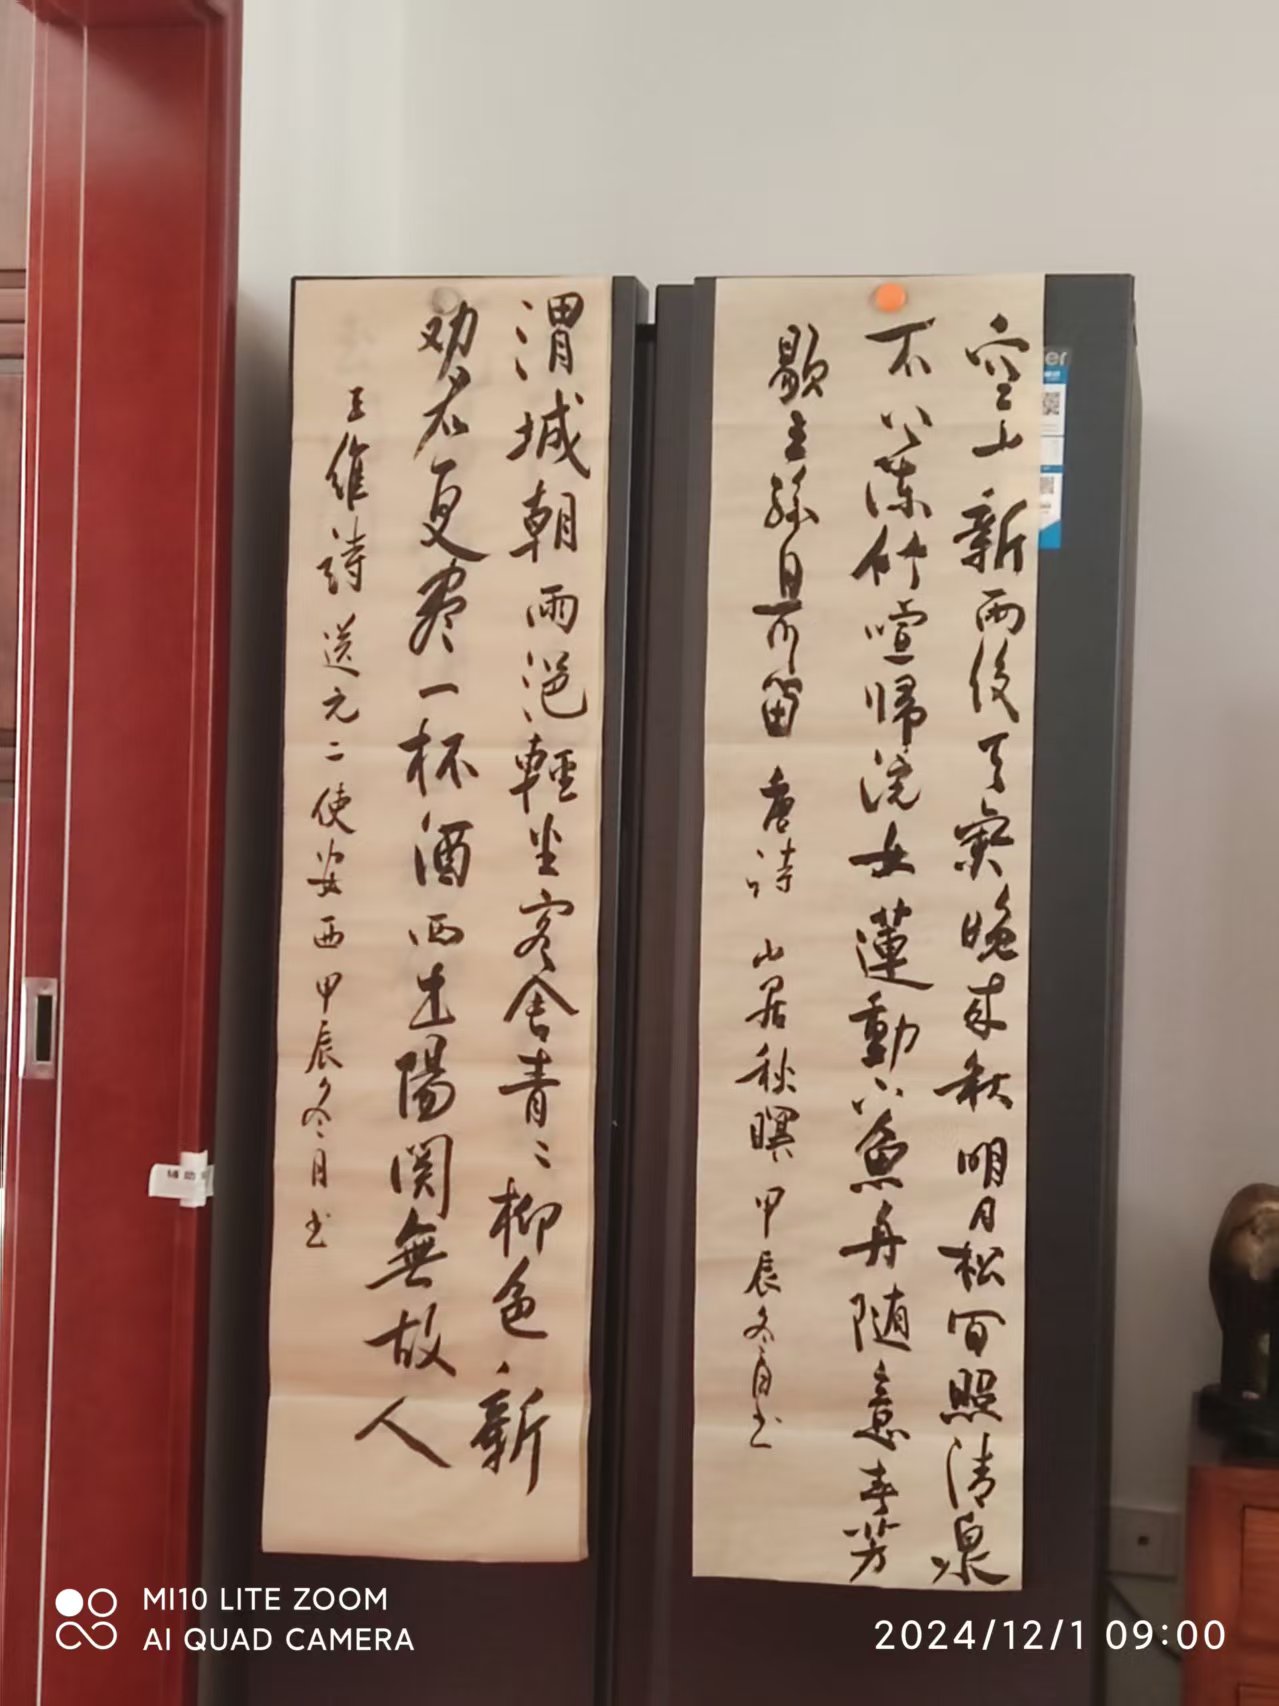 空山新雨後天氣晚来秋明月松间照清泉
石上流竹喧歸浣女蓮動下魚舟随意春芳
歇王孫自可留 唐诗 山居秋暝 甲辰冬月书
渭城朝雨浥輕尘客舍青々柳色新
劝君更尽一杯酒西出陽関無故人
王維詩送元二使安西甲辰冬月书
er
辅助
MI10 LITE ZOOM
AI QUAD CAMERA
2024/12/1 09:00